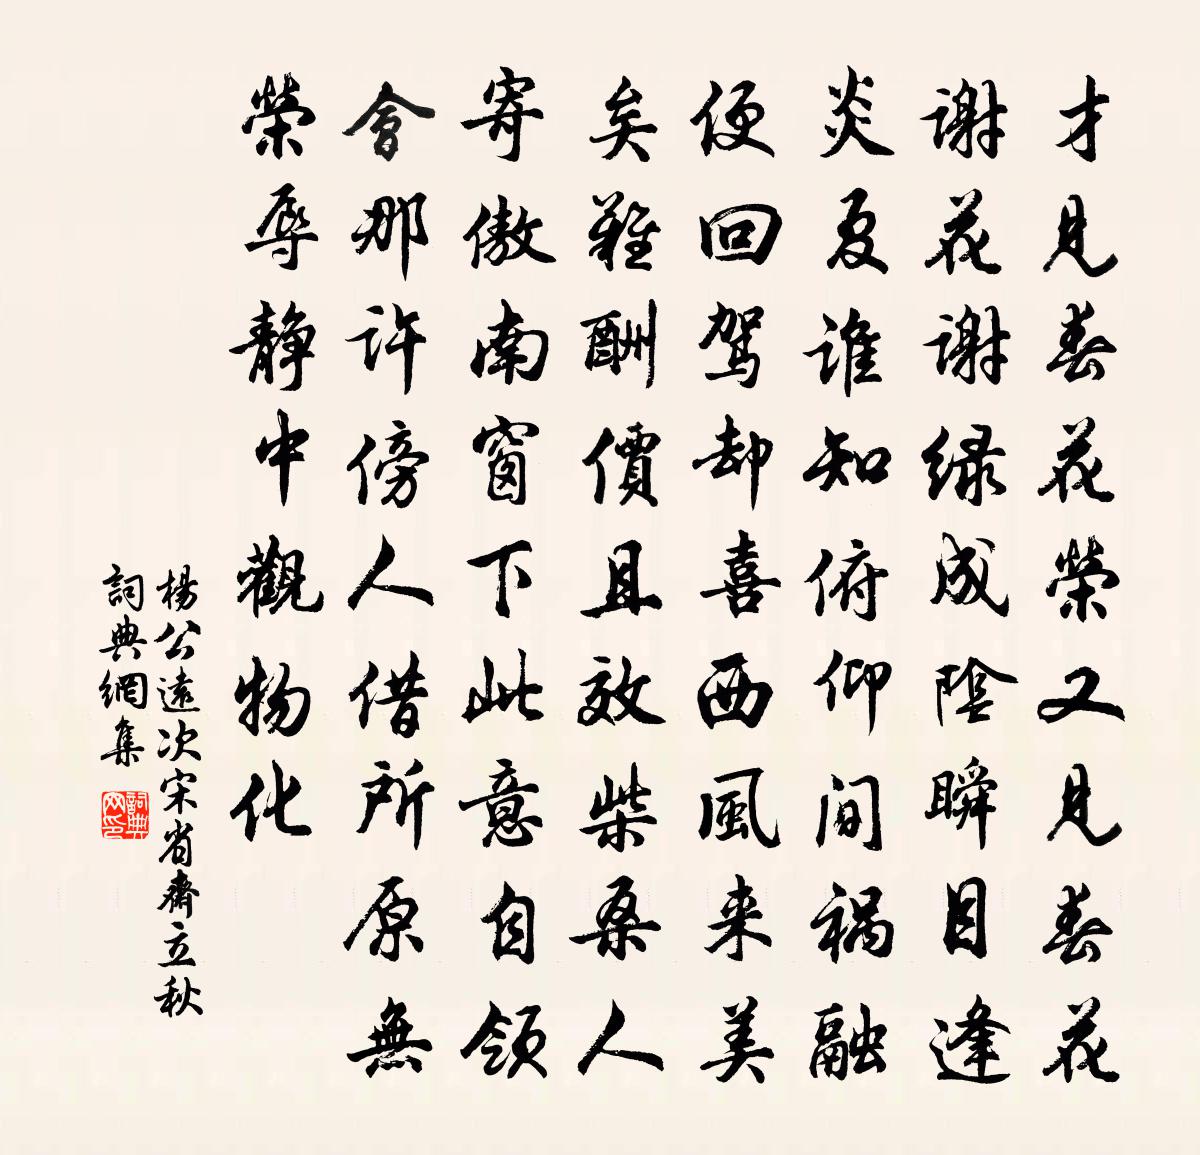 才見春花榮又見春花
謝花謝綠成陰瞬目逢
炎夏誰知俯仰間祸融
便回駕却喜西風来美
矣難酬價且效柴桑人
寄傲南窗下此意自領
會那許傍人借所原無
榮辱靜中觀物化
楊公遠次宋省齋立秋
詞典網集
詞典
网印